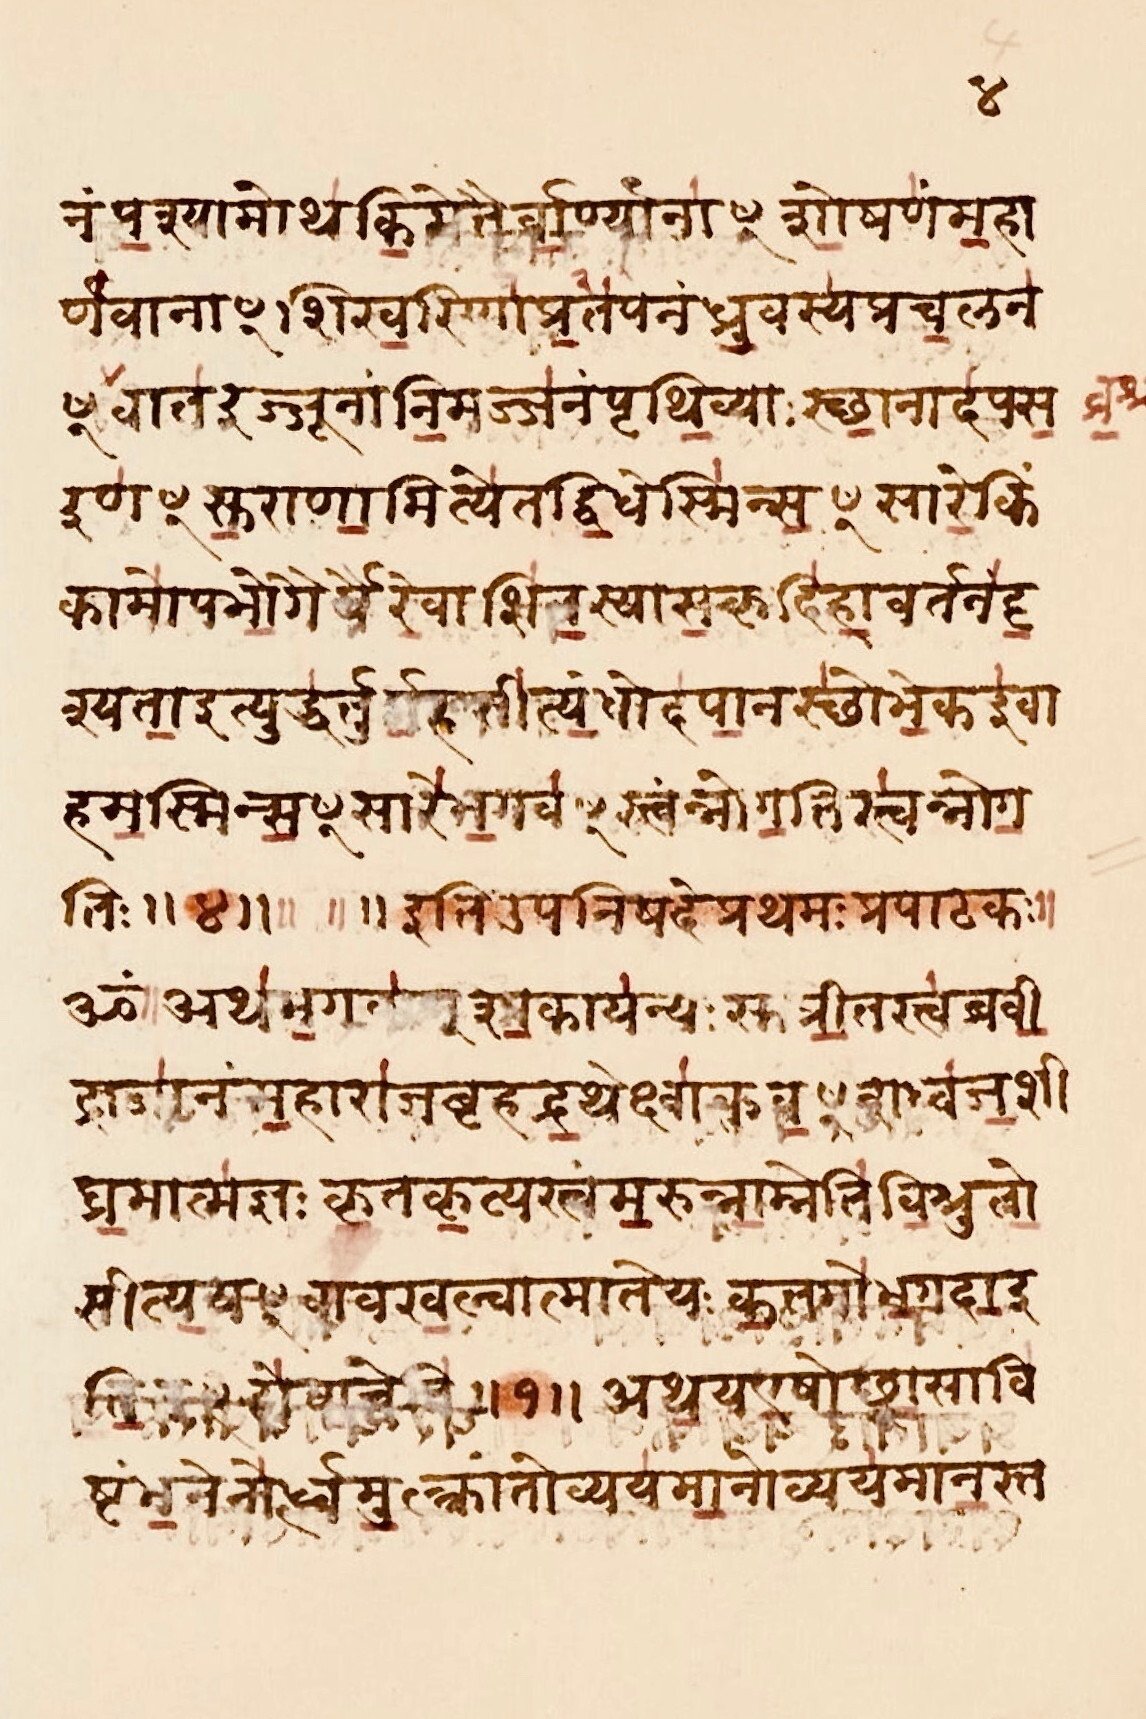 ४
नंपश्यामोथकिमेतैर्वाण्यानाꣳशोषणंमहा
र्णवानाꣳ।शिखरिणांप्रतपनंध्रुवस्यप्रचलन
ꣳवातरज्जूनांनिमज्जनंपृथिव्याःस्थानादपस
रणꣳसुराणामित्येतद्विधेस्मिन्सꣳसारेकिं
कामोपभोगैर्यैरेवाशितस्यासकृदिहावर्तनंदृ
श्यताइत्युद्धर्तुमर्हसीत्यंधोदपानस्थोभेकइवा
हमस्मिन्सꣳसारेभगवꣳस्त्वंन्नोगतिस्त्वन्नोग
तिः॥४॥ ॥इतिउपनिषदेप्रथमःप्रपाठकः॥
ॐ अथभगवाञ्शाकायन्यःसुप्रीतस्त्वब्रवी
द्राजानंमहाराजबृहद्रथेक्ष्वाकुवꣳशध्वजशी
घ्रमात्मज्ञःकृतकृत्यस्त्वंमरुन्नाम्नेतिविश्रुतो
सीत्ययंꣳवावखल्वात्माते यःकतमोभगवाइ
ति ॥१॥ अथयएषोच्छ्वासावि
ष्टंभनेनोर्ध्वमुत्क्रांतोव्ययमानोव्ययमानस्त